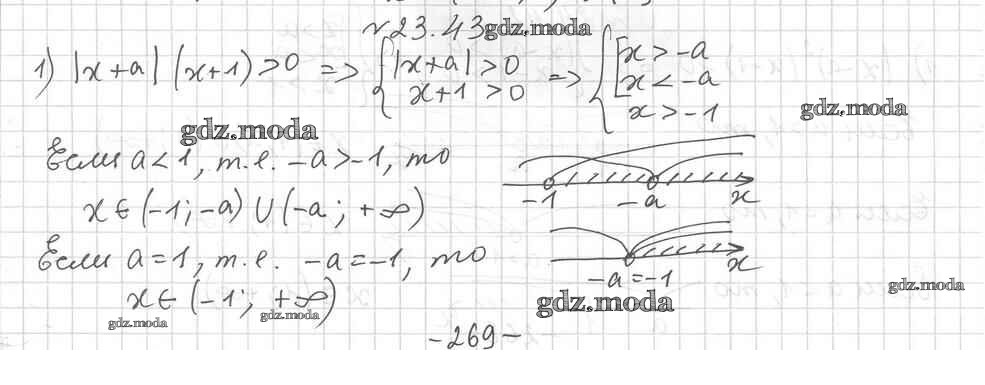 N 23.43 gdz.moda
1) |x+a| (x+1) > 0 => { |x+a| > 0 => { [ x > -a
x+1 > 0 x < -a
x > -1
gdz.moda
gdz.moda
Если a < 1, т.е. -a > -1, то
x ∈ (-1; -a) ∪ (-a; +∞)
-1 -a x
Если a = 1, т.е. -a = -1, то
x ∈ (-1; +∞)
-a = -1 x
gdz.moda
gdz.moda
gdz.moda
gdz.moda
-269-